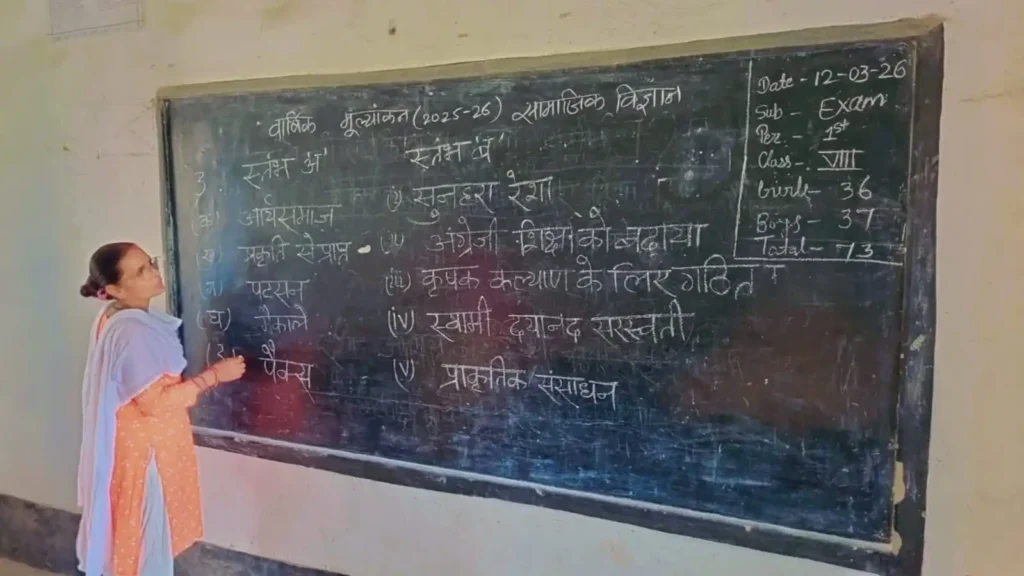 वार्षिक मूल्यांकन (2025-26) सामाजिक विज्ञान
3. स्तंभ अ' स्तंभ ब'
(क) आर्यसमाज (i) सुनहरा रेशा
(ख) प्रकृति से प्राप्त - (ii) अंग्रेजी शिक्षा को बढ़ाया
(ग) पटसन (iii) कृषक कल्याण के लिए गठित
(घ) मैकाले (iv) स्वामी दयानंद सरस्वती
पैक्स (v) प्राकृतिक संसाधन
Date - 12-03-26
Sub - Exam
Per - 1st
Class - VIII
Girls - 36
Boys - 37
Total - 73